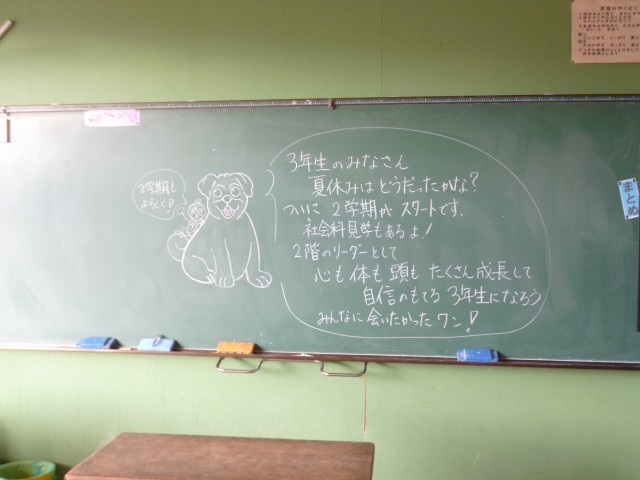 2学期も
よろしくね!
3年生のみなさん
夏休みはどうだったかな?
ついに2学期がスタートです。
社会科見学もあるよ!
2階のリーダーとして
心も体も頭もたくさん成長して
自信のもてる3年生になろう
みんなに会いたかったワン!
まとめ